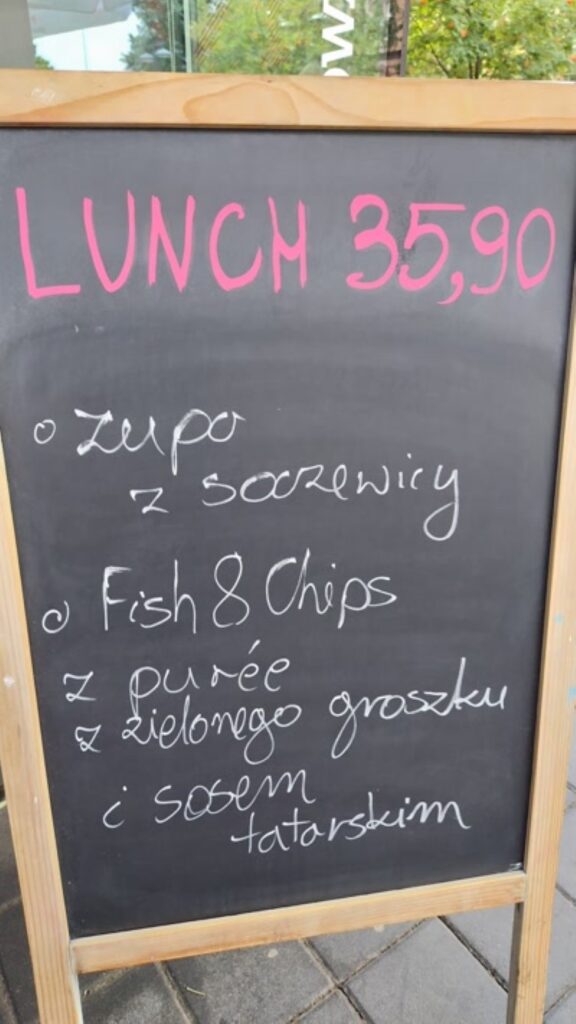 LUNCH 35,90
o zupa
z soczewicy
o Fish & Chips
z purée
z zielonego groszku
i sosem
tatarskim